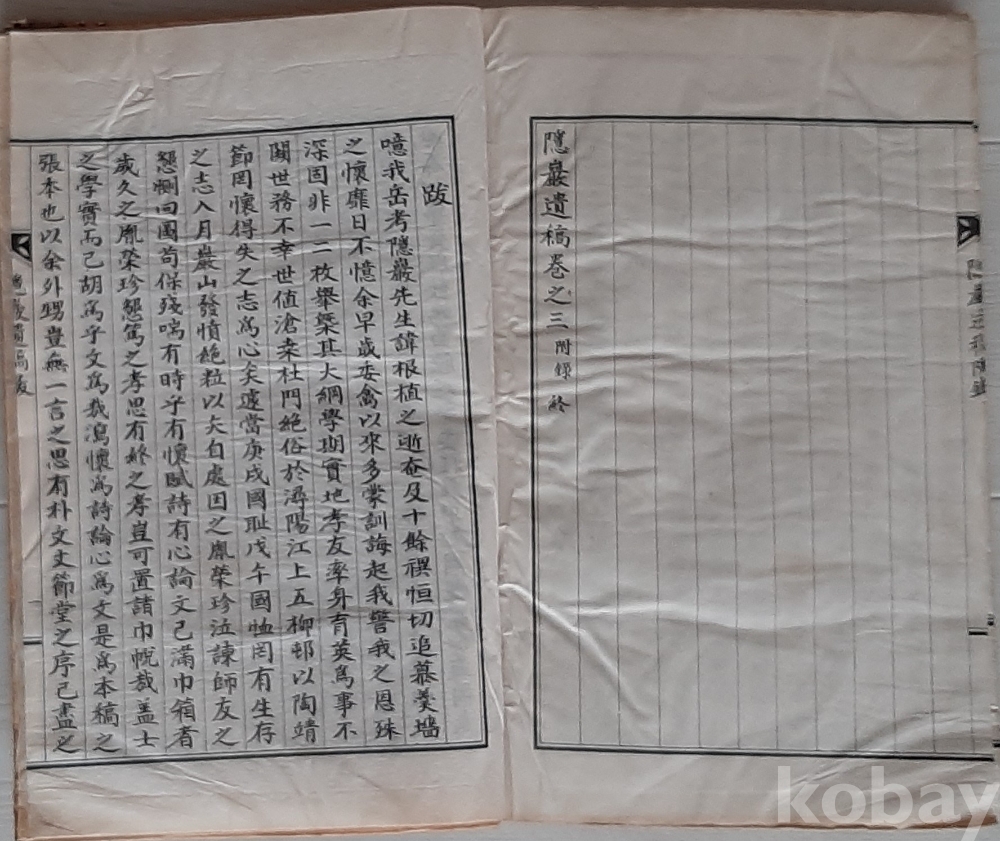 隱巖遺稿卷之三 附錄 終
跋
噫我岳考隱巖先生諱根植之逝奄及十餘禩恒切追慕羹墻
之懷靡日不憶余早歲委禽以來多蒙訓誨起我警我之恩殊
深固非一二枚擧槩其大綱學期實地孝友率身育英爲事不
關世務不幸世値滄桑杜門絶俗於潯陽江上五柳邨以陶靖
節罔懷得失之志爲心矣遽當庚戌國耻戊午國恤罔有生存
之志入月巖山發憤絶粒以矢自處因之胤榮珍泣諫師友之
懇惻回图苟保殘喘有時乎有懷賦詩有心論文已滿巾箱者
歲久之胤榮珍懇篤之孝思有終之孝豈可置諸巾帨哉盖士
之學實而已胡爲乎文爲哉瀉懷爲詩論心爲文是爲本稿之
張本也以余外甥豈無一言之思有朴文丈節堂之序已盡之
kobay